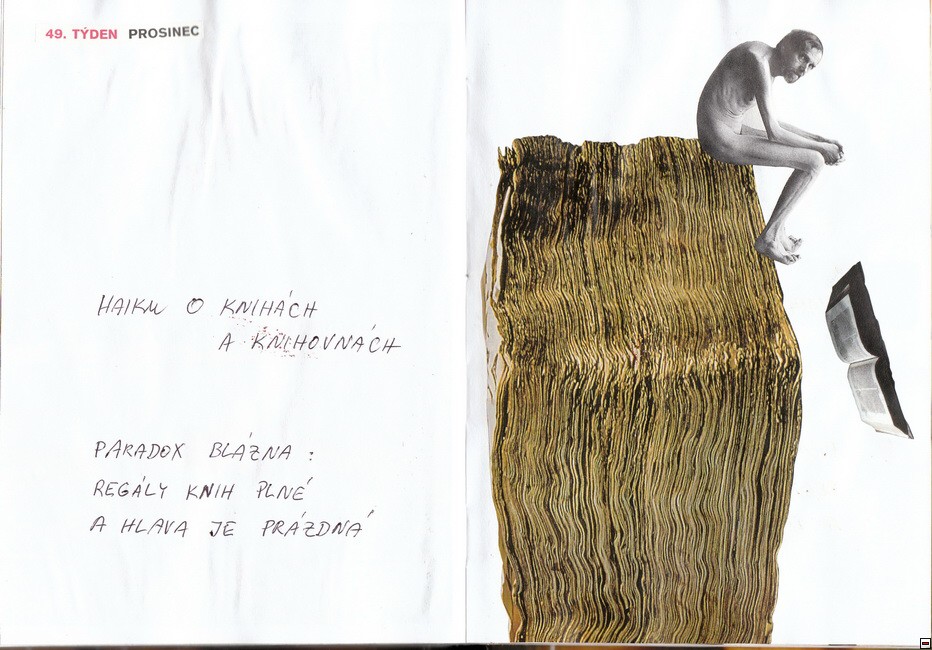 49. TÝDEN PROSINEC
HAIKU O KNIHÁCH
A KNIHOVNÁCH
PARADOX BLÁZNA :
REGÁLY KNIH PLNÉ
A HLAVA JE PRÁZDNÁ